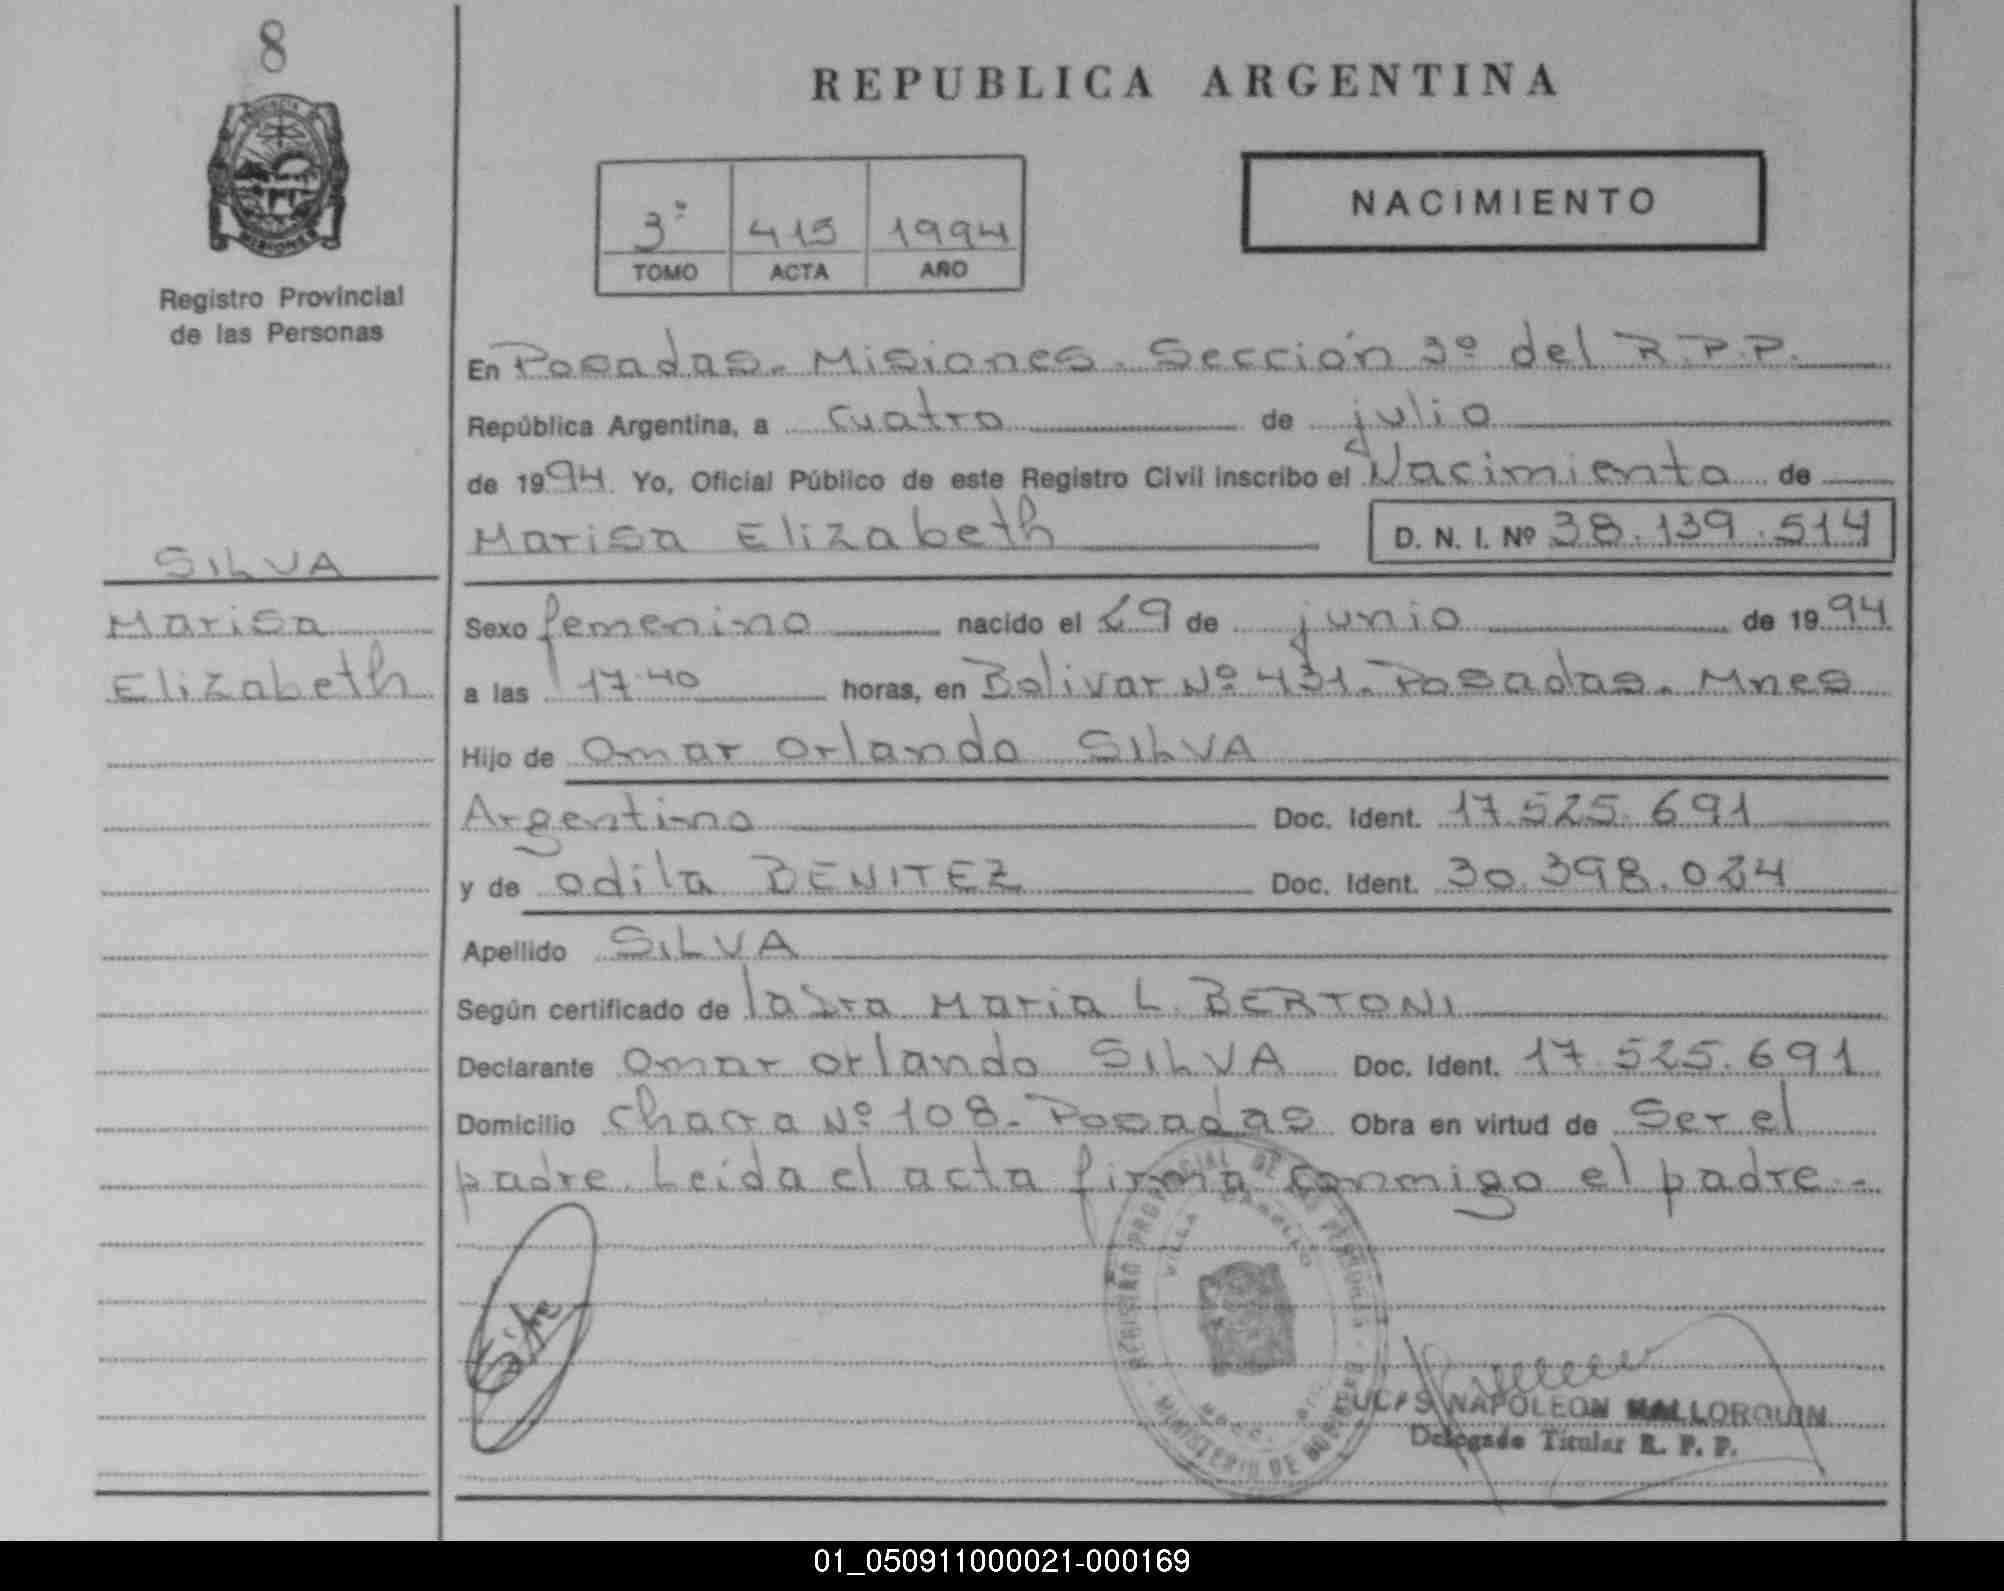 8
Registro Provincial
de las Personas
SILVA
Marisa
Elizabeth
REPUBLICA ARGENTINA
3º 415 1994
TOMO ACTA AÑO
NACIMIENTO
En Posadas - Misiones - Sección 3º del R.P.P.
República Argentina, a cuatro de julio
de 1994. Yo, Oficial Público de este Registro Civil inscribo el Nacimiento de
Marisa Elizabeth D. N. I. Nº 38.139.514
Sexo femenino nacido el 29 de junio de 1994
a las 17.40 horas, en Bolivar Nº 431 - Posadas - Mnes
Hijo de Omar Orlando SILVA
Argentino Doc. Ident. 17.525.691
y de Odila BENITEZ Doc. Ident. 30.398.024
Apellido SILVA
Según certificado de la Dra Maria L. BERTONI
Declarante Omar Orlando SILVA Doc. Ident. 17.525.691
Domicilio Chacra Nº 108 - Posadas Obra en virtud de Ser el
padre. Leida el acta firma conmigo el padre.-
REGISTRO PROVINCIAL DE LAS PERSONAS
VILLA
MINISTERIO DE GOBIERNO
NAPOLEON MALLORQUIN
Delegado Titular R. P. P.
01_050911000021-000169